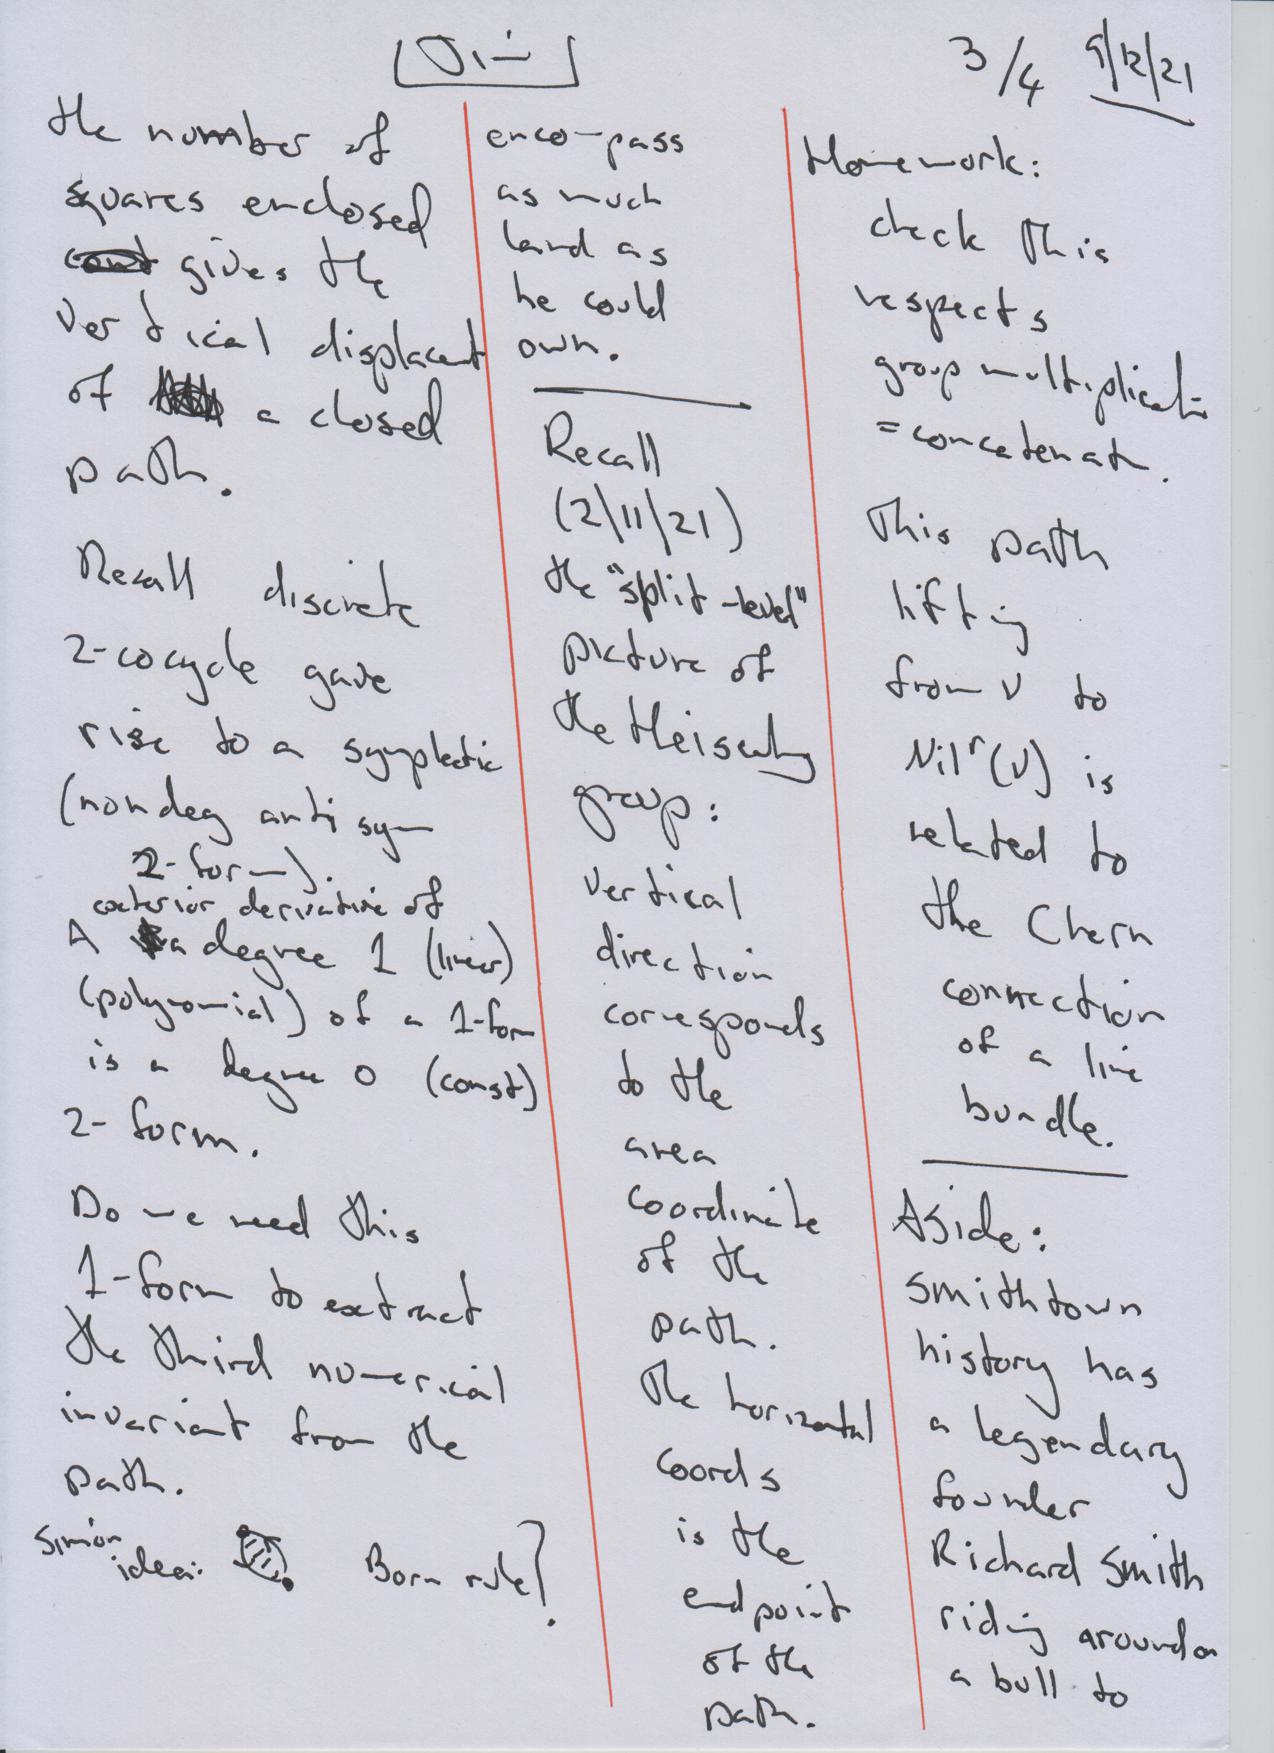 3/4 9/12/21
the number of
squares enclosed
gives the
vertical displacent
of a closed
path.
Recall discrete
2-cocycle gave
rise to a symplectic
(nondeg antisym
2-form).
exterior derivative of
A a degree 1 (linear)
(polynomial) of a 1-form
is a degree 0 (const)
2-form.
Do we need this
1-form to extract
the third numerical
invariant from the
path.
Simon
idea: Born rule?
encompass
as much
land as
he could
own.
Recall
(2/11/21)
the "split-level"
picture of
the Heisenberg
group:
vertical
direction
corresponds
to the
area
coordinate
of the
path.
The horizontal
coords
is the
endpoint
of the
path.
Homework:
check this
respects
group multiplication
= concatenat.
This path
lifting
from V to
Nil^r(V) is
related to
the Chern
connection
of a line
bundle.
Aside:
Smithtown
history has
a legendary
founder
Richard Smith
riding around on
a bull to